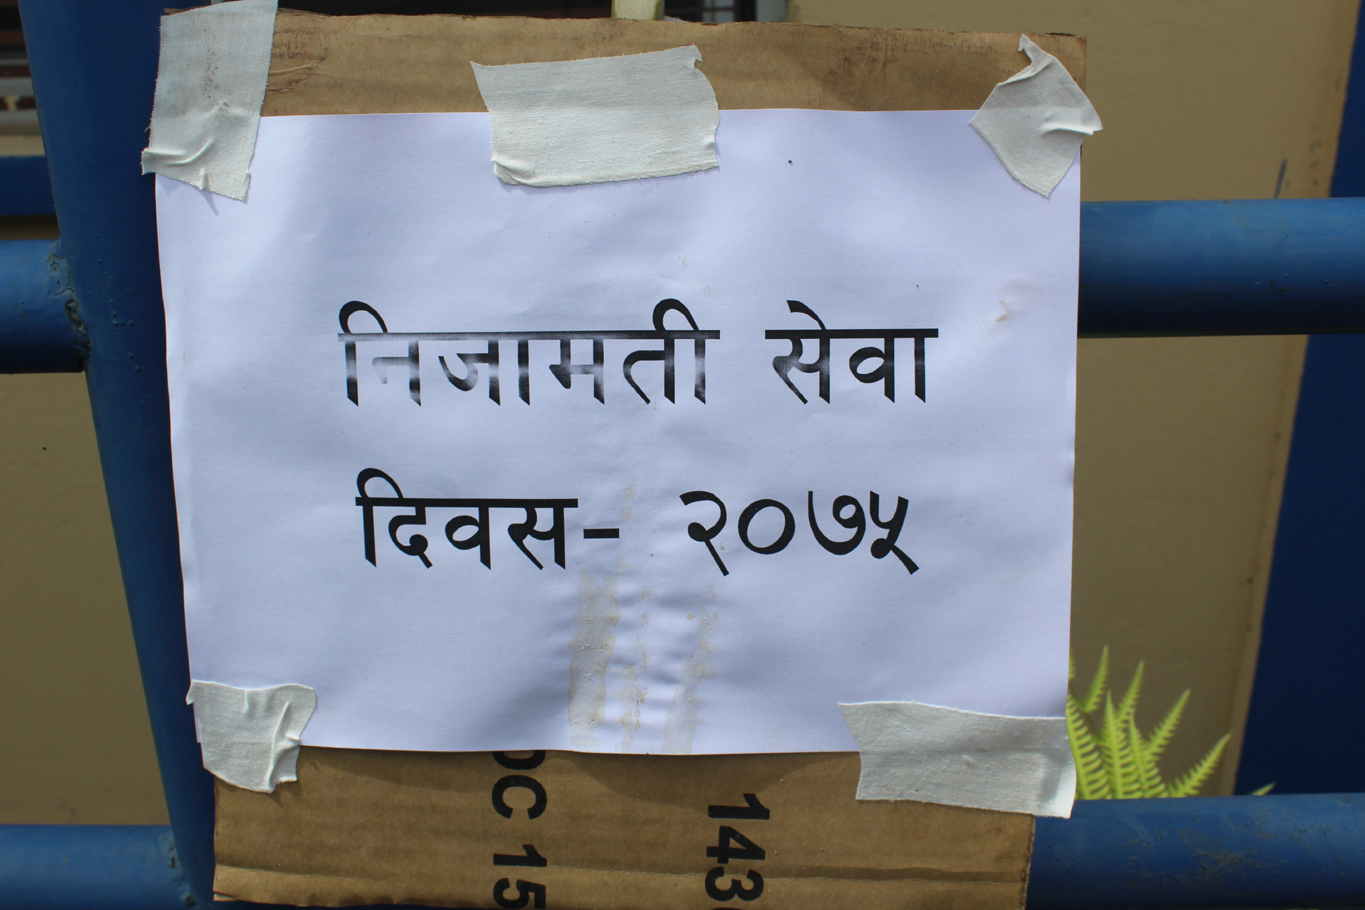 निजामती सेवा
दिवस- २०७५
OC 15
143